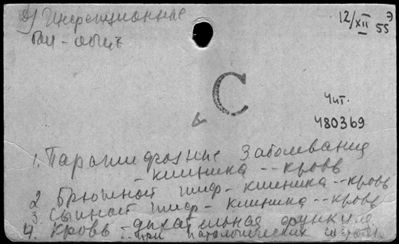 2) Инфекционные
12/XII 55
С
Чит.
480369
1. Паратифозные заболевания
- клиника -- кровь
2. Брюшной тиф - клиника -- кровь
3. Сыпной тиф - клиника -- кровь
4. Кровь - дыхательная функция
при патологических